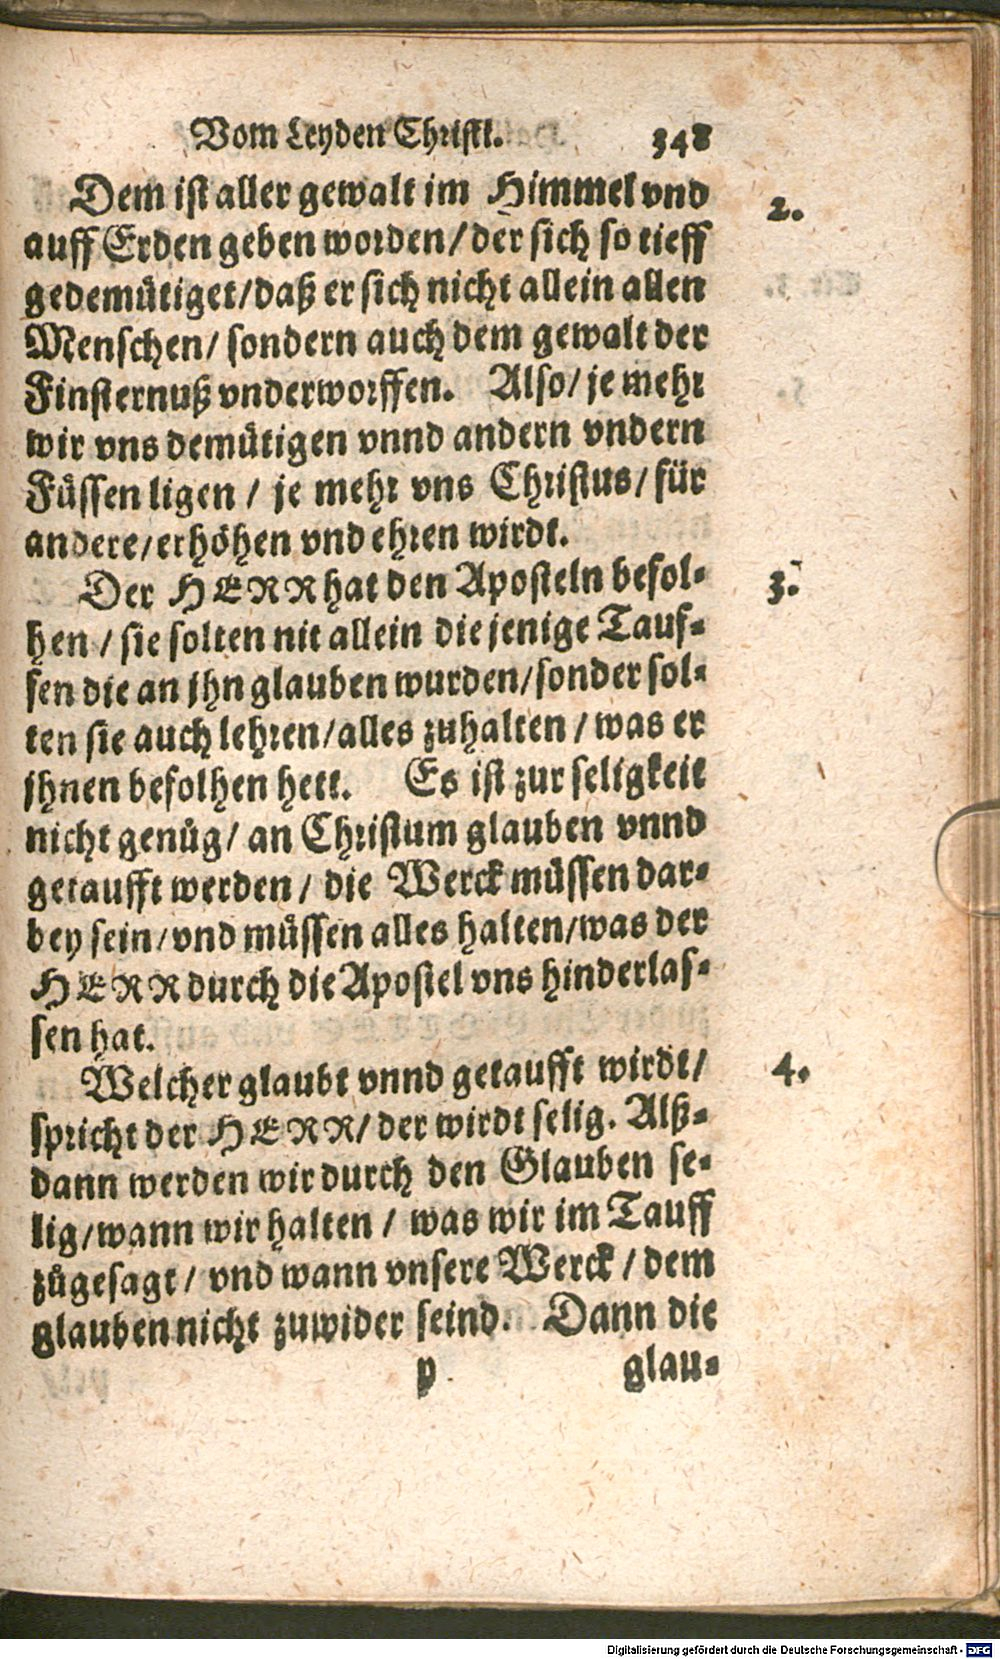 Vom Leyden Christi. 348
Dem ist aller gewalt im Himmel vnd 2.
auff Erden geben worden/ der sich so tieff
gedemütiget/daß er sich nicht allein allen
Menschen/ sondern auch dem gewalt der
Finsternuß vnderworffen. Also/ je mehr
wir vns demütigen vnnd andern vndern
Füssen ligen / je mehr vns Christus/ für
andere/erhöhen vnd ehren wirdt.
Der HERR hat den Aposteln befol- 3.
hen / sie solten nit allein die jenige Tauf-
fen die an jhn glauben wurden/sonder sol-
ten sie auch lehren/alles zuhalten / was er
jhnen befolhen hett. Es ist zur seligkeit
nicht genůg/ an Christum glauben vnnd
getaufft werden / die Werck müssen dar-
bey sein/vnd müssen alles halten/was der
HERR durch die Apostel vns hinderlas-
sen hat.
Welcher glaubt vnnd getaufft wirdt/ 4.
spricht der HERR/ der wirdt selig. Alß-
dann werden wir durch den Glauben se-
lig/wann wir halten / was wir im Tauff
zůgesagt / vnd wann vnsere Werck / dem
glauben nicht zuwider seind. Dann die
y glau-
Digitalisierung gefördert durch die Deutsche Forschungsgemeinschaft - DFG